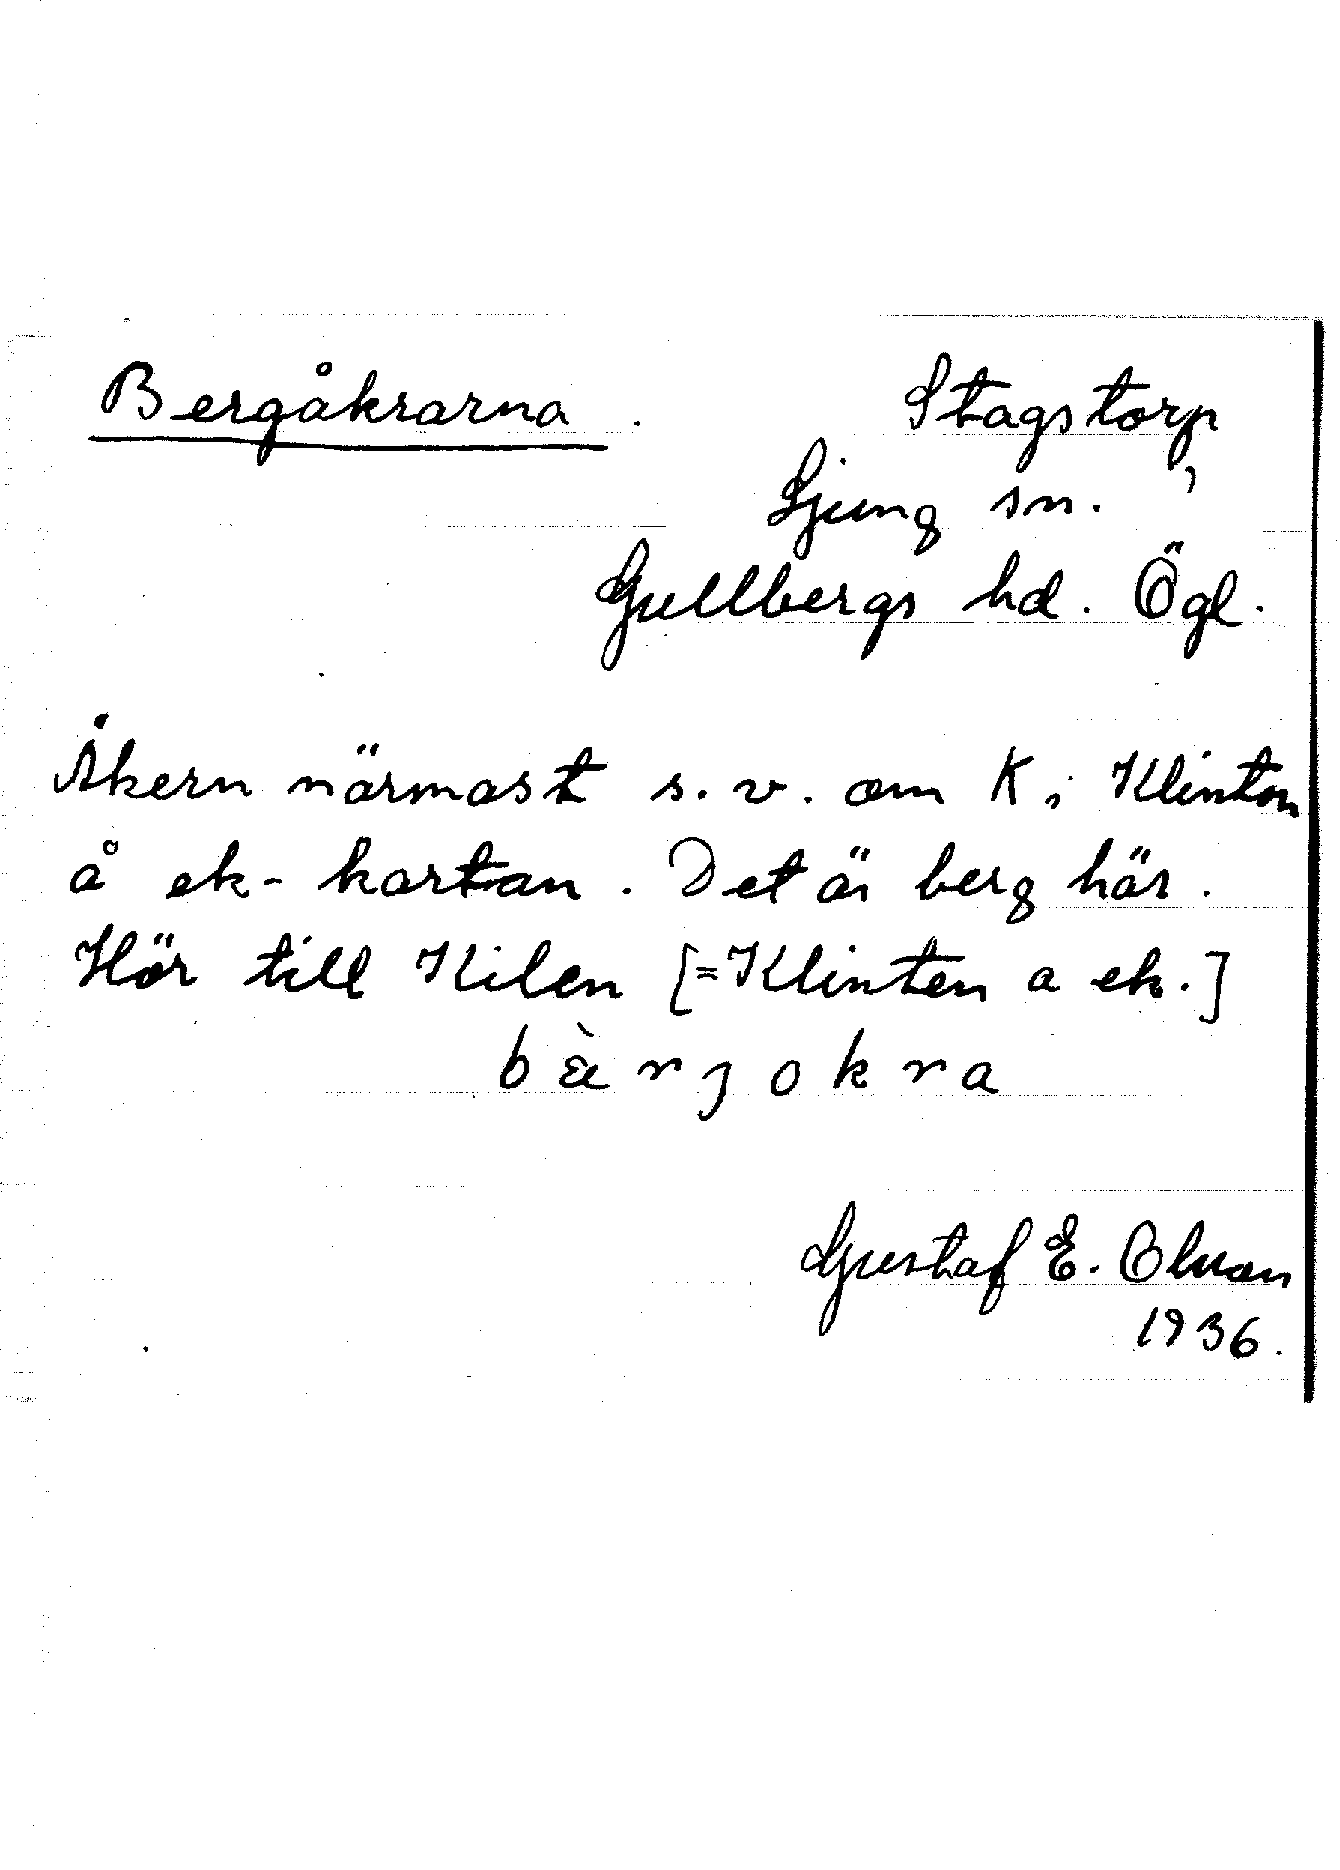 Bergåkrarna. Stagstorp,
Ljung sn.
Gullbergs hd. Ögl.
Åkern närmast s.v. om K i Klinten
å ek-kartan. Det är berg här.
Hör till Kilen [=Klinten a ek.]
bæ̀rjokra
Gustaf E. Olsson
1936.